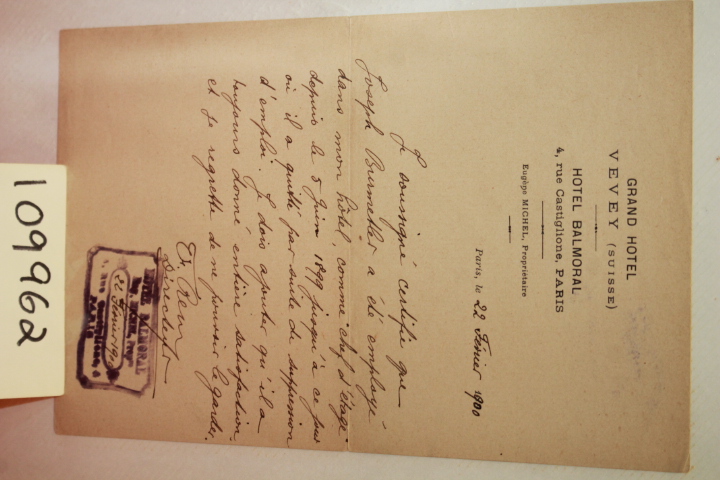 GRAND HOTEL
VEVEY (SUISSE)
HOTEL BALMORAL
4, rue Castiglione, PARIS
Eugène MICHEL, Propriétaire
Paris, le 22 Février 1900
Je soussigné certifie que
Joseph Burmetler a été employé
dans mon hôtel, comme chef d'étage
depuis le 5 Juin 1899 jusqu'à ce jour
où il a quitté par suite de suppression
d'emploi. Je dois ajouter qu'il a
toujours donné entière satisfaction
et je regrette de ne pouvoir le garder.
Directeur
HOTEL BALMORAL
22 Février 1900
4, Rue Castiglione, 4
PARIS
109962